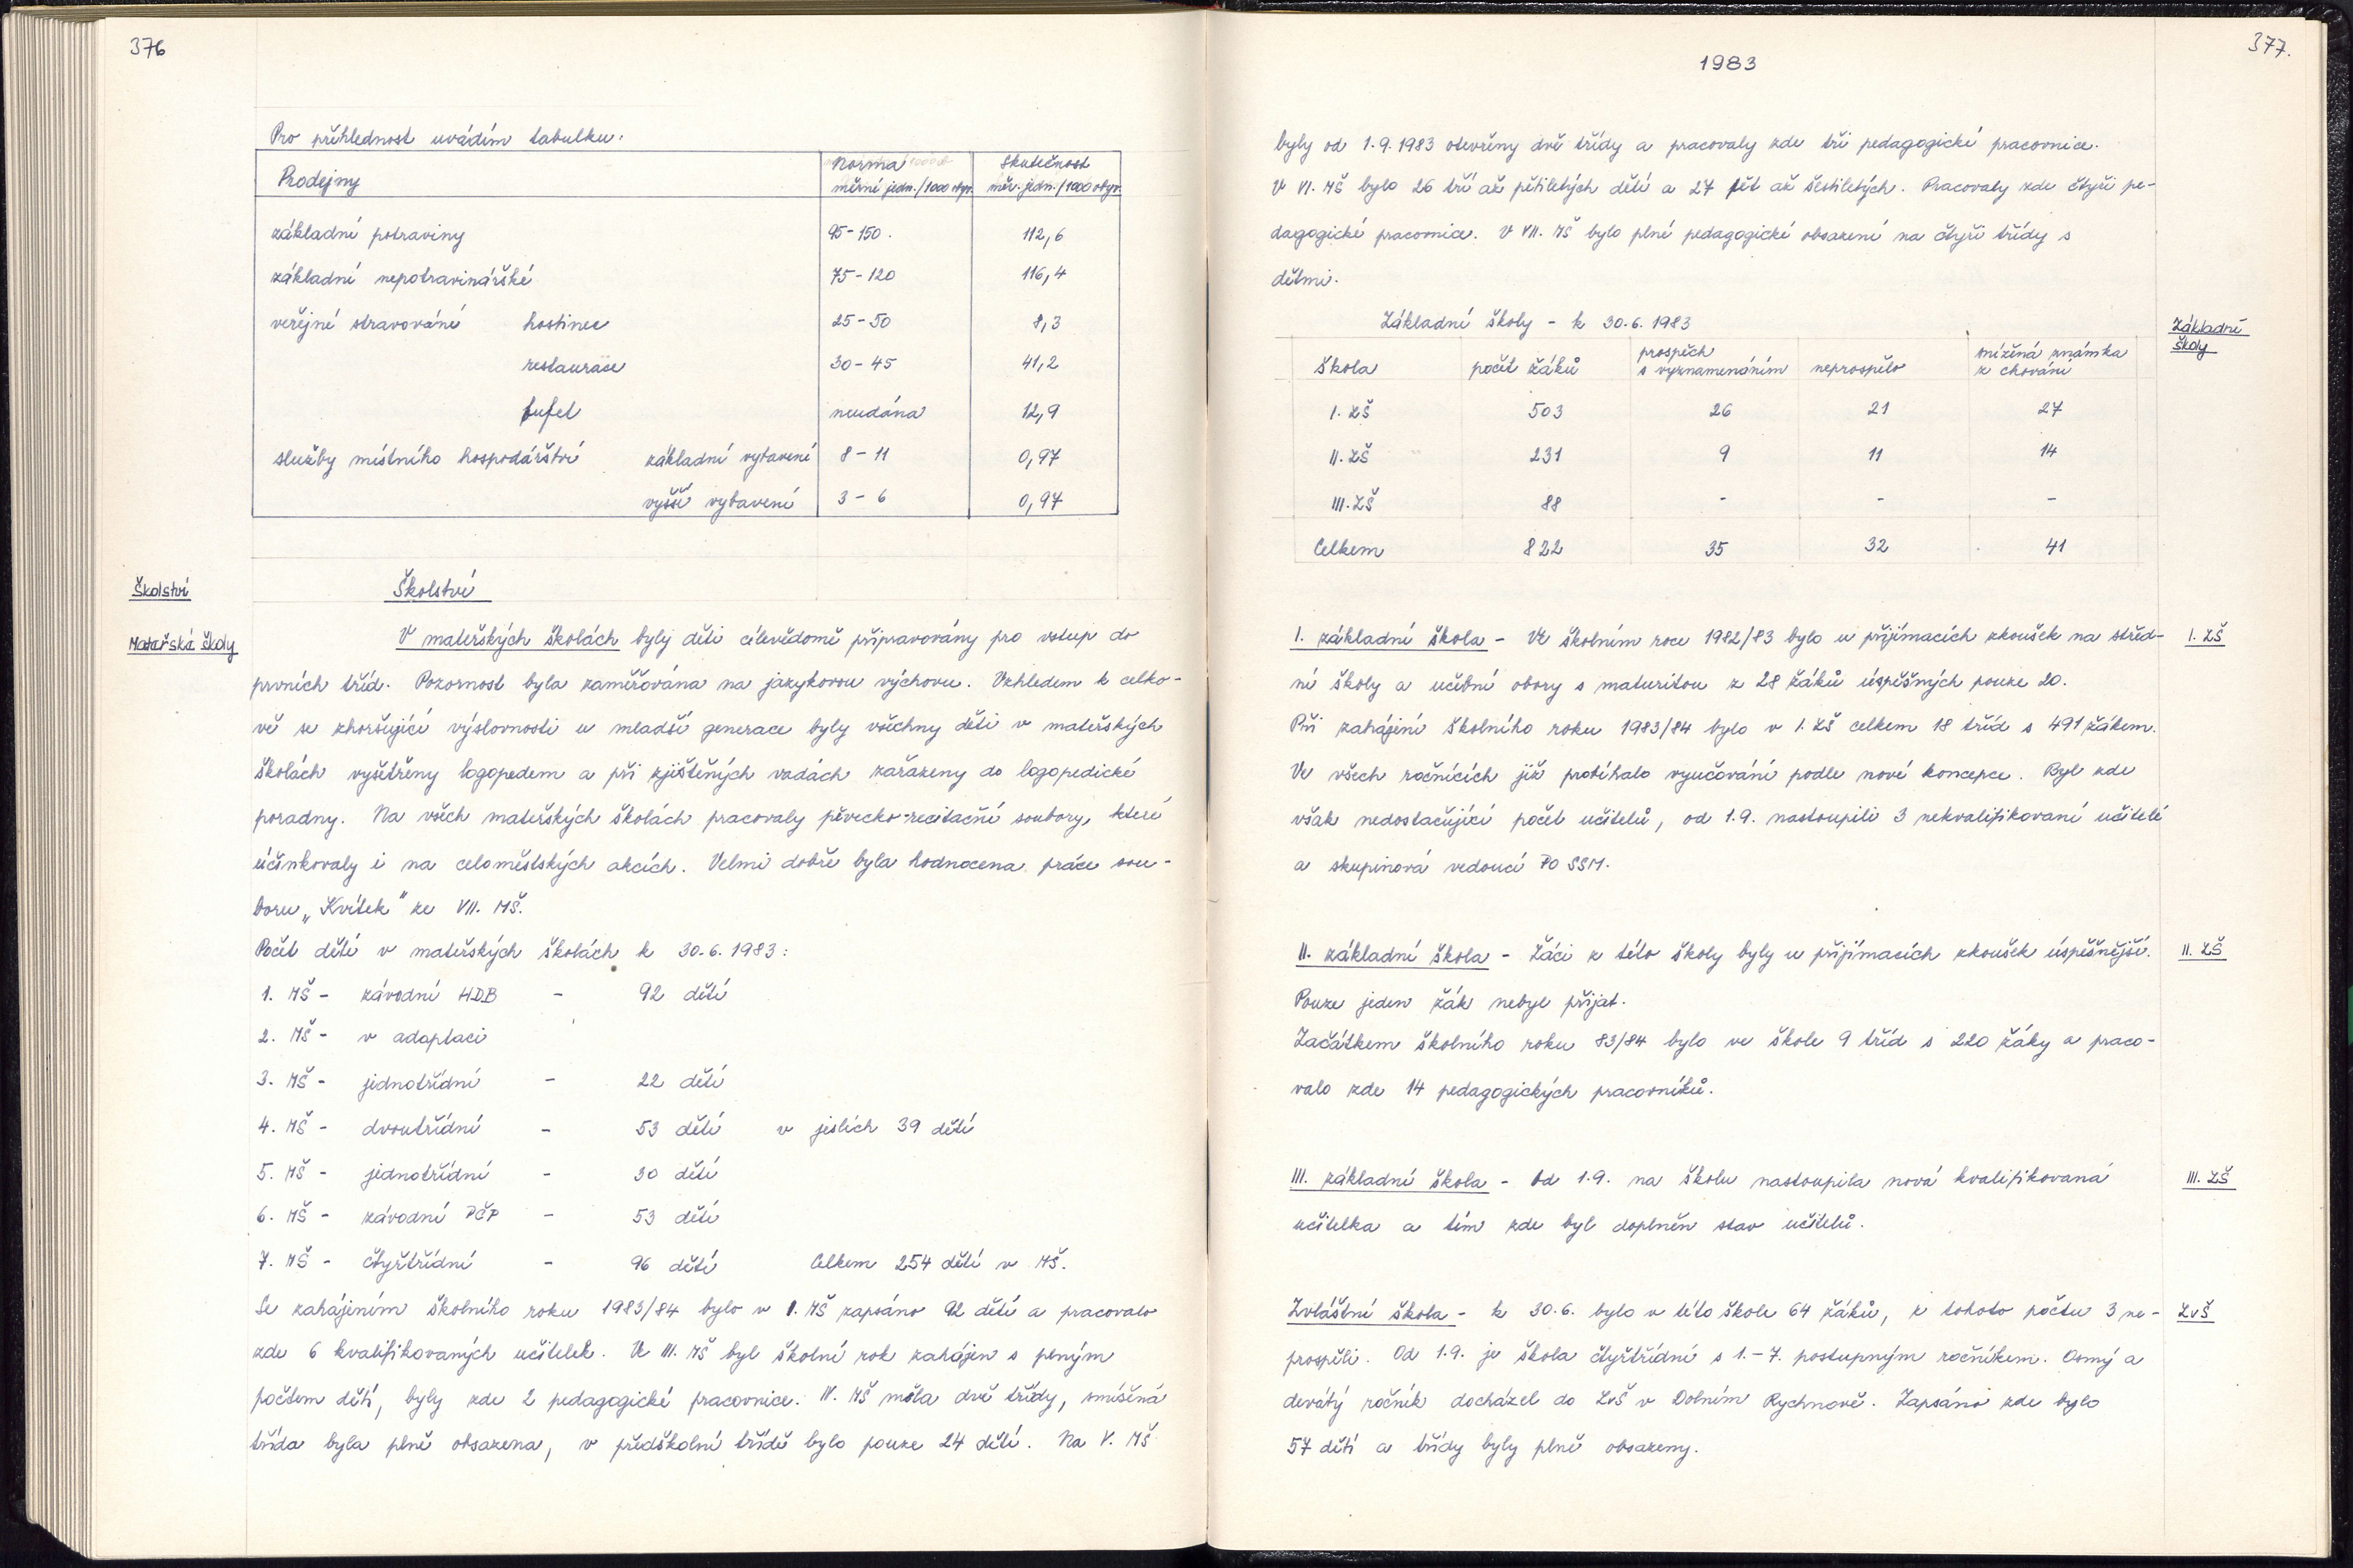 376
Pro přehlednost uvádím tabulku.
Prodejny
Norma měrné jedn./1000 obyv.
Skutečnost měr. jedn./1000 obyv.
základní potraviny 95-150. 112,6
základní nepotravinářské 75-120 116,4
veřejné stravování hostinec 25-50 8,3
restaurace 30-45 41,2
bufet neudána 12,9
služby místního hospodářství základní vybavení 8-11 0,97
vyšší vybavení 3-6 0,97
Školství
Školství
Mateřské školy
V mateřských školách byly děti cílevědomě připravovány pro vstup do
prvních tříd. Pozornost byla zaměřována na jazykovou výchovu. Vzhledem k celko-
vě se zhoršující výslovnosti u mladší generace byly všechny děti v mateřských
školách vyšetřeny logopedem a při zjištěných vadách zařazeny do logopedické
poradny. Na všech mateřských školách pracovaly pěvecko-recitační soubory, které
účinkovaly i na celoměstských akcích. Velmi dobře byla hodnocena práce sou-
boru „Kvítek" ze VII. MŠ.
Počet dětí v mateřských školách k 30.6.1983:
1. MŠ - závodní HDB - 92 dětí
2. MŠ - v adaptaci
3. MŠ - jednotřídní - 22 dětí
4. MŠ - dvoutřídní - 53 dětí v jeslích 39 dětí
5. MŠ - jednotřídní - 30 dětí
6. MŠ - závodní PČP - 53 dětí
7. MŠ - čtyřtřídní - 96 dětí Celkem 254 dětí v MŠ.
Se zahájením školního roku 1983/84 bylo v I. MŠ zapsáno 92 dětí a pracovalo
zde 6 kvalifikovaných učitelek. Ve III. MŠ byl školní rok zahájen s plným
počtem dětí, byly zde 2 pedagogické pracovnice. IV. MŠ měla dvě třídy, smíšená
třída byla plně obsazena, v předškolní třídě bylo pouze 24 dětí. Na V. MŠ
377.
1983
byly od 1.9.1983 otevřeny dvě třídy a pracovaly zde tři pedagogické pracovnice.
V VI. MŠ bylo 26 tří až pětiletých dětí a 27 pět až šestiletých. Pracovaly zde čtyři pe-
dagogické pracovnice. V VII. MŠ bylo plné pedagogické obsazení na čtyři třídy s
dětmi.
Základní školy - k 30.6.1983
Základní školy
Škola počet žáků prospěch s vyznamenáním neprospělo snížená známka z chování
I. ZŠ 503 26 21 27
II. ZŠ 231 9 11 14
III. ZŠ 88 - - -
Celkem 822 35 32 41
I. základní škola - Ve školním roce 1982/83 bylo u přijímacích zkoušek na střed-
I. ZŠ
ní školy a učební obory s maturitou z 28 žáků úspěšných pouze 20.
Při zahájení školního roku 1983/84 bylo v I. ZŠ celkem 18 tříd s 491 žákem.
Ve všech ročnících již probíhalo vyučování podle nové koncepce. Byl zde
však nedostačující počet učitelů, od 1.9. nastoupili 3 nekvalifikovaní učitelé
a skupinová vedoucí PO SSM.
II. základní škola - Žáci z této školy byly u přijímacích zkoušek úspěšnější.
II. ZŠ
Pouze jeden žák nebyl přijat.
Začátkem školního roku 83/84 bylo ve škole 9 tříd s 220 žáky a praco-
valo zde 14 pedagogických pracovníků.
III. základní škola - Od 1.9. na školu nastoupila nová kvalifikovaná
III. ZŠ
učitelka a tím zde byl doplněn stav učitelů.
Zvláštní škola - k 30.6. bylo v této škole 64 žáků, z tohoto počtu 3 ne-
ZvŠ
prospěli. Od 1.9. je škola čtyřtřídní s 1.-7. postupným ročníkem. Osmý a
devátý ročník docházel do ZvŠ v Dolním Rychnově. Zapsáno zde bylo
57 dětí a třídy byly plně obsazeny.